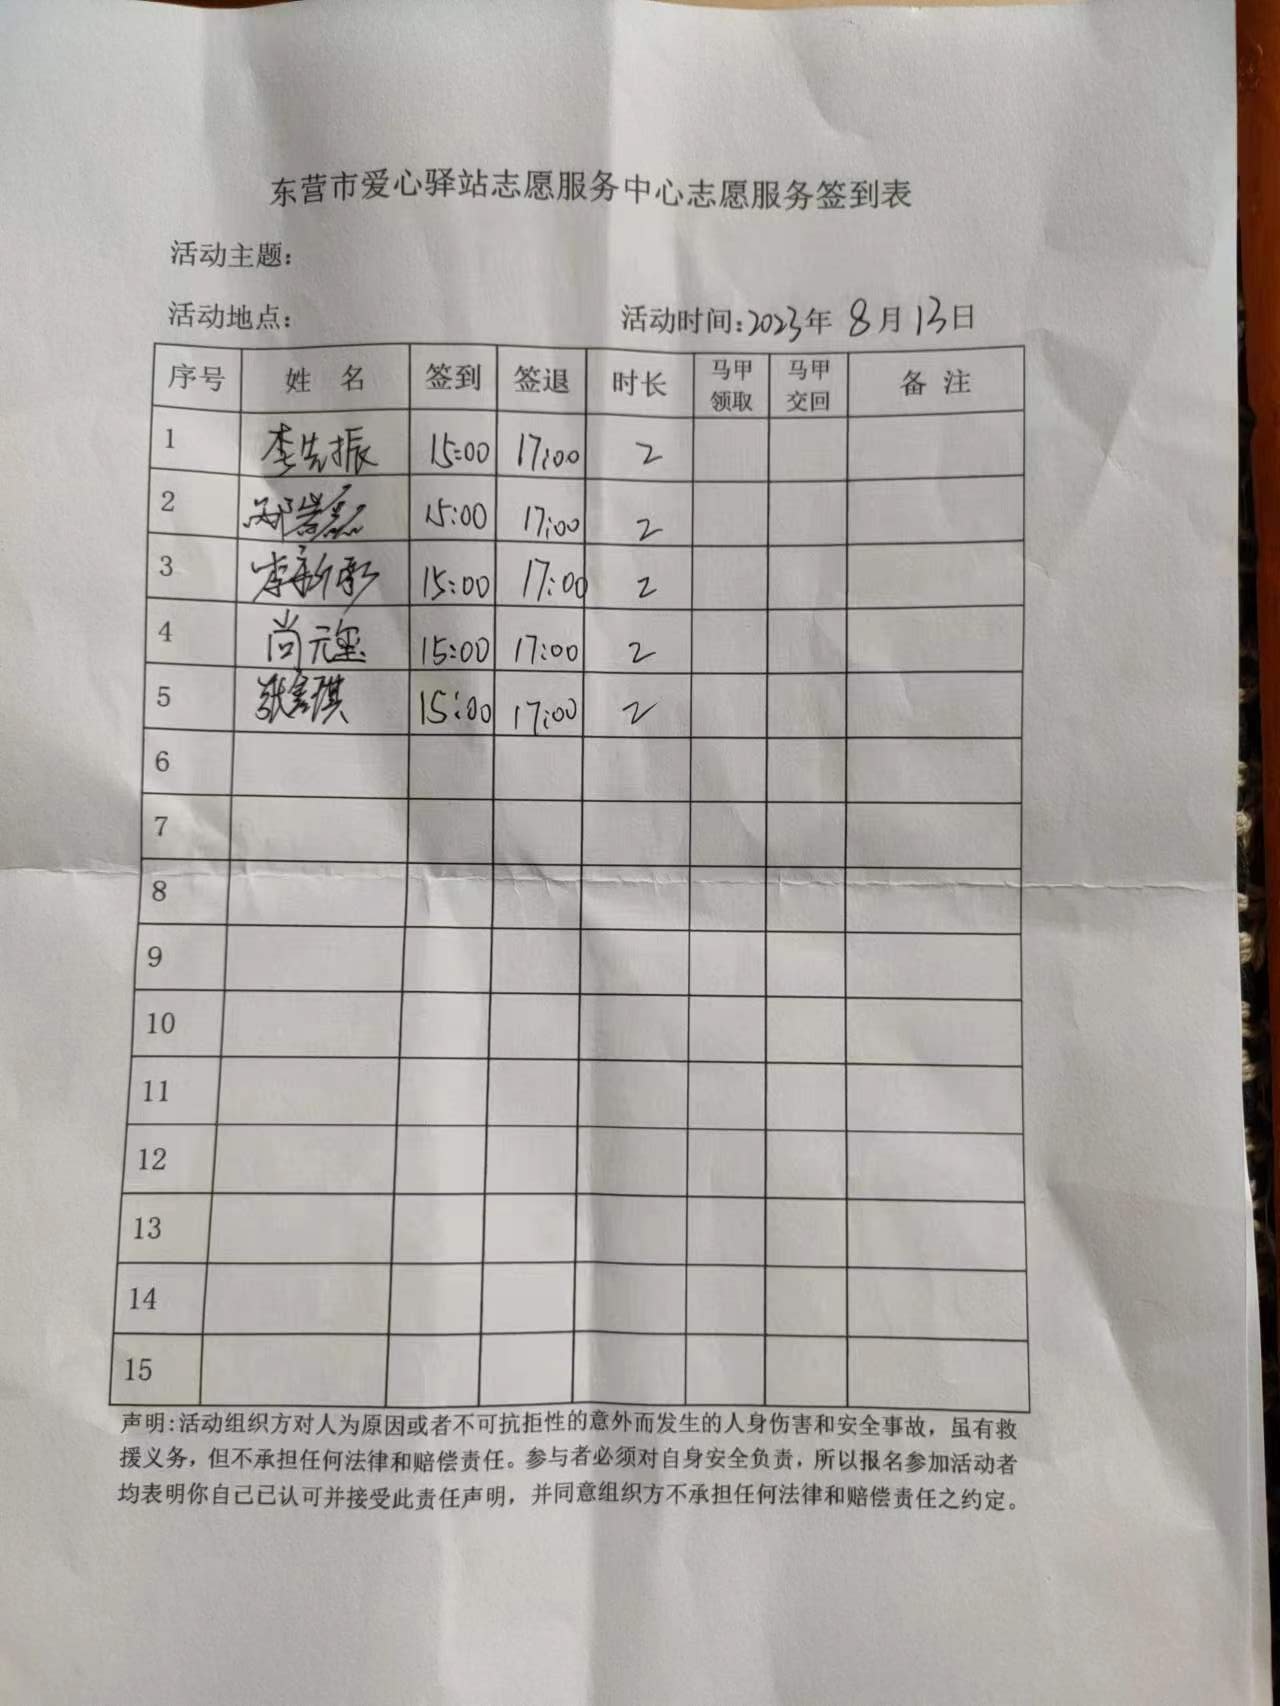 东营市爱心驿站志愿服务中心志愿服务签到表
活动主题：
活动地点： 活动时间：2023年 8月13日
序号 姓 名 签到 签退 时长 马甲领取 马甲交回 备 注
1 李先振 15:00 17:00 2
2 15:00 17:00 2
3 李新 15:00 17:00 2
4 尚元玺 15:00 17:00 2
5 张 琪 15:00 17:00 2
6
7
8
9
10
11
12
13
14
15
声明：活动组织方对人为原因或者不可抗拒性的意外而发生的人身伤害和安全事故，虽有救
援义务，但不承担任何法律和赔偿责任。参与者必须对自身安全负责，所以报名参加活动者
均表明你自己已认可并接受此责任声明，并同意组织方不承担任何法律和赔偿责任之约定。